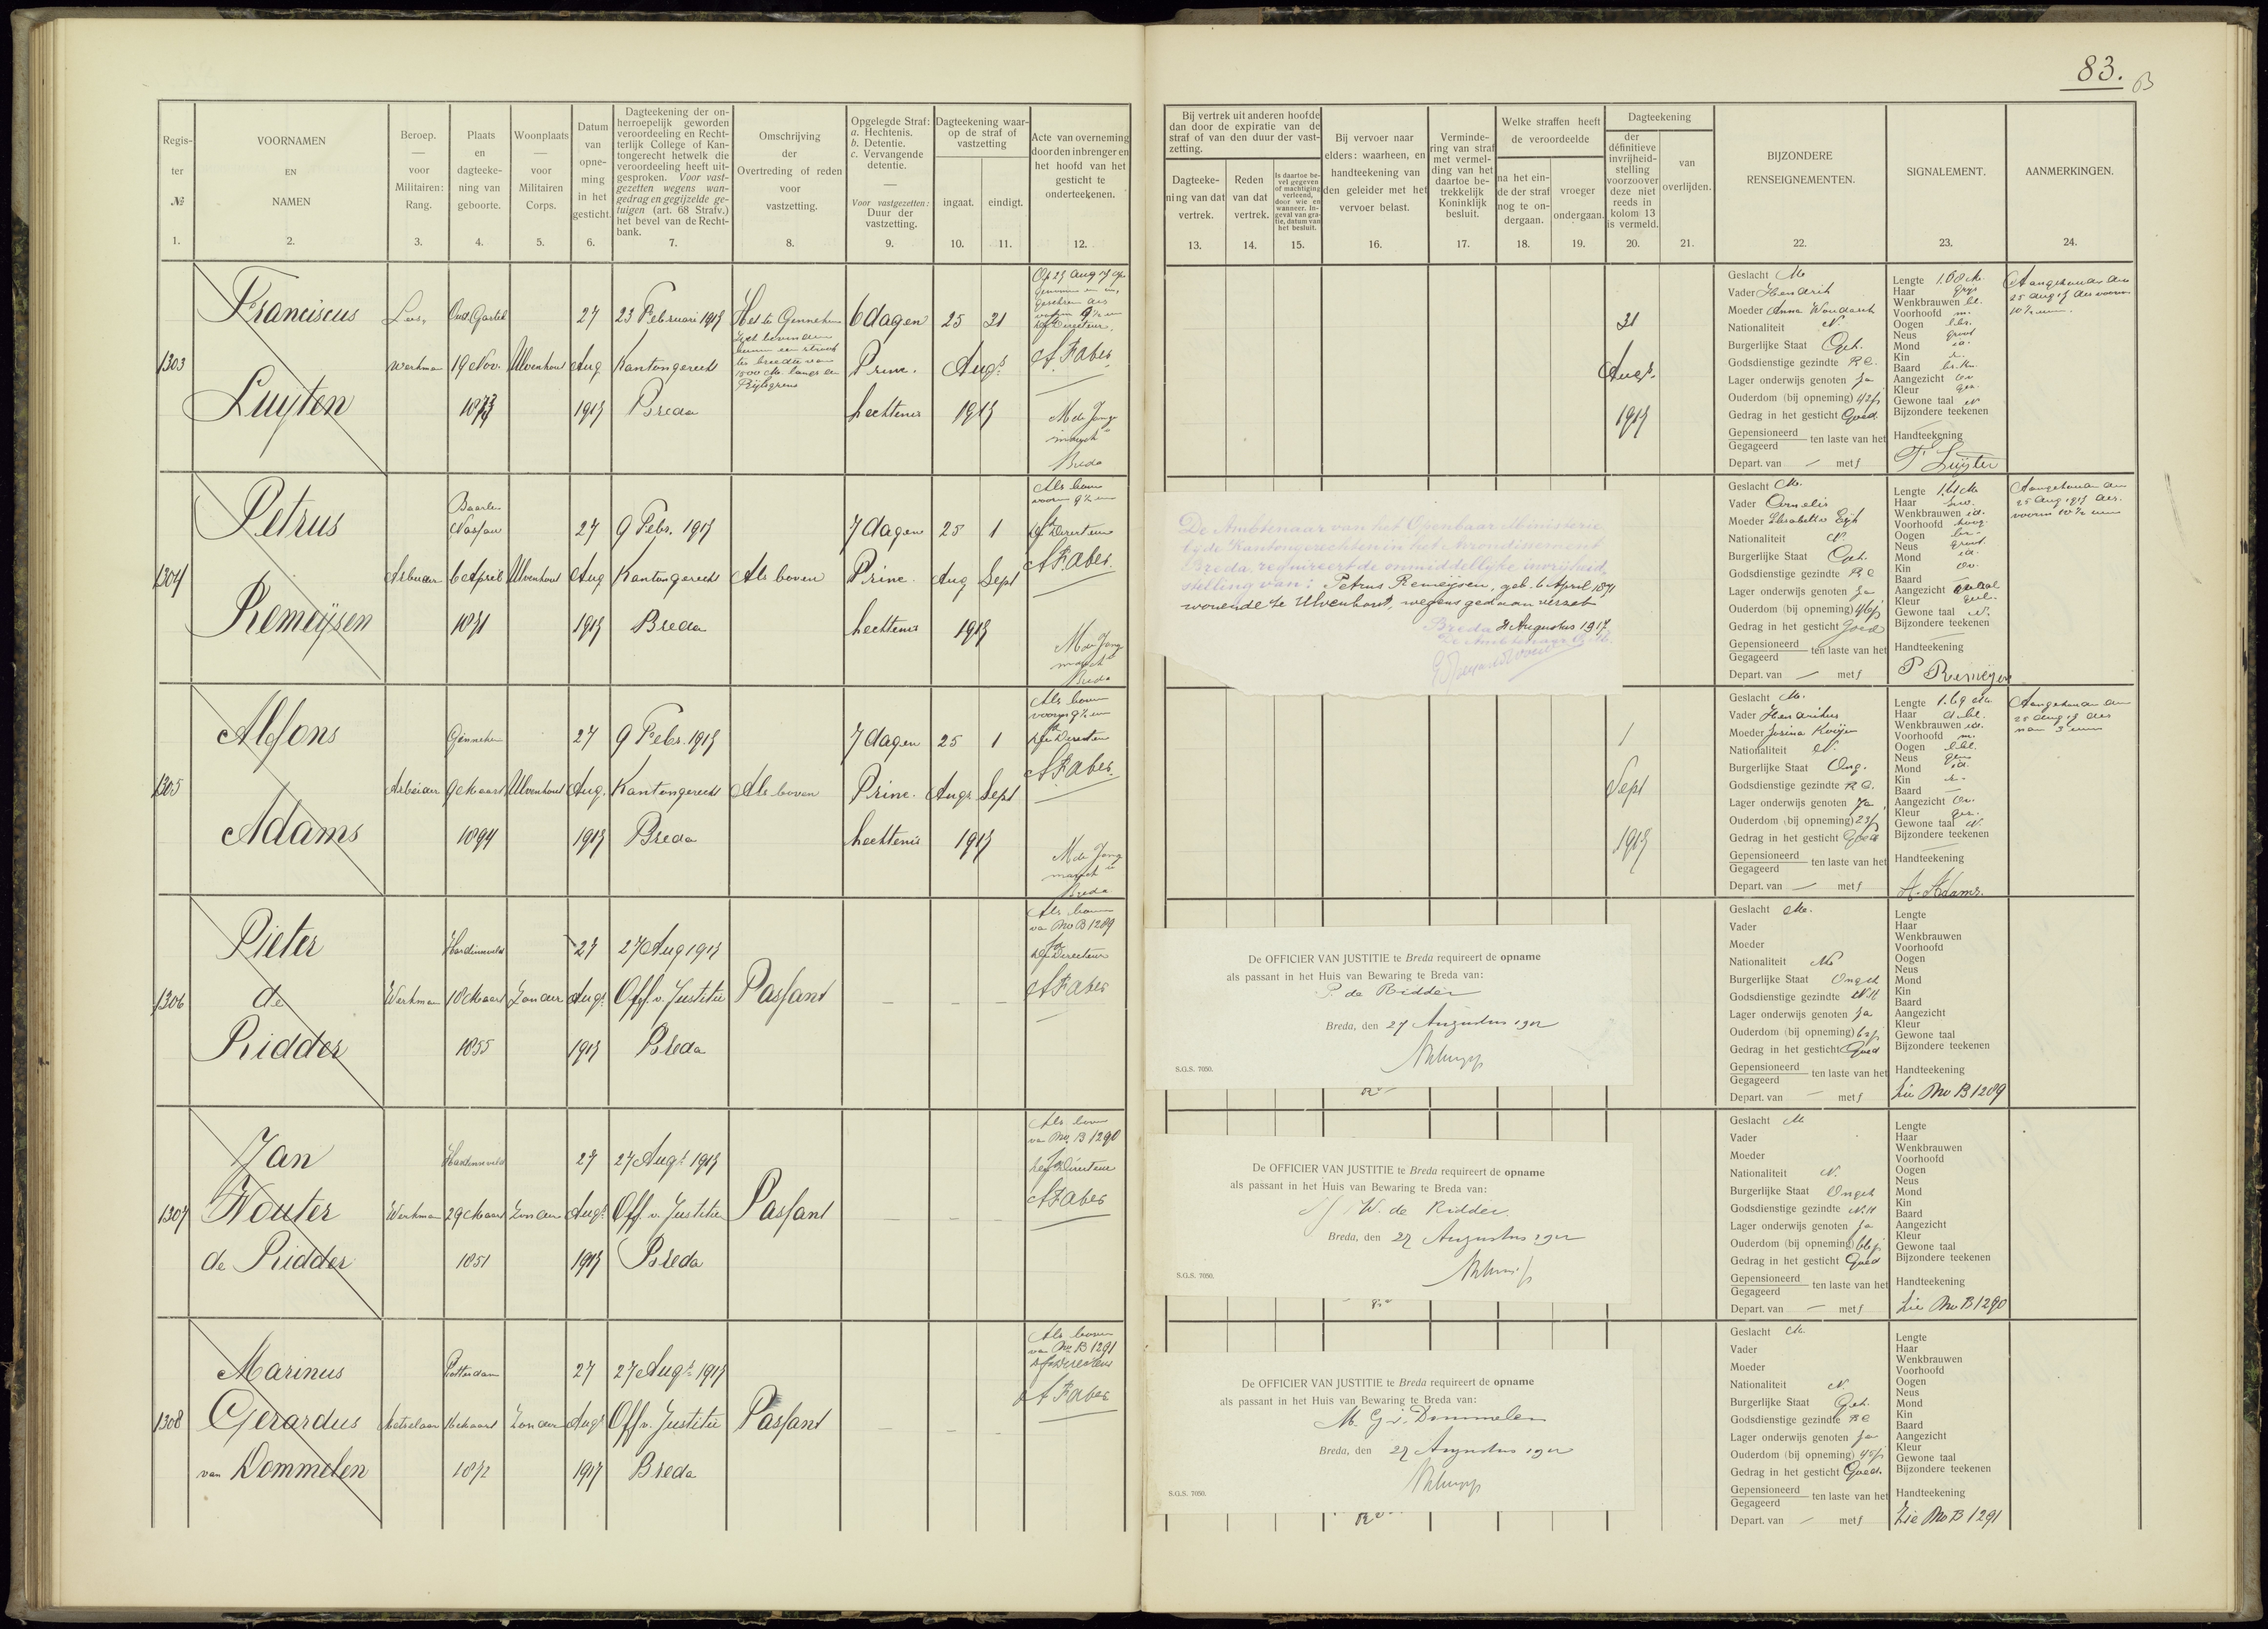 83.
Regis-
ter
№
1.
VOORNAMEN
EN
NAMEN
2.
Beroep.
—
voor
Militairen:
Rang.
3.
Plaats
en
dagteeke-
ning van
geboorte.
4.
Woonplaats
—
voor
Militairen
Corps.
5.
Datum
van
opne-
ming
in het
gesticht.
6.
Dagteekening der on-
herroepelijk geworden
veroordeeling en Rech-
terlijk College of Kan-
tongerecht hetwelk die
veroordeeling heeft uit-
gesproken. Voor vast-
gezetten wegens wan-
gedrag en gegijzelde ge-
tuigen (art. 68 Strafv.)
het bevel van de Recht-
bank.
7.
Omschrijving
der
Overtreding of reden
voor
vastzetting.
8.
Opgelegde Straf:
a. Hechtenis.
b. Detentie.
c. Vervangende
detentie.
—
Voor vastgezetten:
Duur der
vastzetting.
9.
Dagteekening waar-
op de straf of
vastzetting
ingaat.
10.
eindigt.
11.
Acte van overneming
door den inbrenger en
het hoofd van het
gesticht te
onderteekenen.
12.
Bij vertrek uit anderen hoofde
dan door de expiratie van de
straf of van den duur der vast-
zetting.
Dagteeke-
ning van dat
vertrek.
13.
Reden
van dat
vertrek.
14.
Is daartoe be-
vel gegeven
of machtiging
verleend,
door wie en
wanneer. In-
geval van gra-
tie, datum van
het besluit.
15.
Bij vervoer naar
elders: waarheen, en
handteekening van
den geleider met het
vervoer belast.
16.
Verminde-
ring van straf
met vermel-
ding van het
daartoe be-
trekkelijk
Koninklijk
besluit.
17.
Welke straffen heeft
de veroordeelde
na het ein-
de der straf
nog te on-
dergaan.
18.
vroeger
ondergaan.
19.
Dagteekening
der
définitieve
invrijheid-
stelling
voorzoover
deze niet
reeds in
kolom 13
is vermeld.
20.
van
overlijden.
21.
BIJZONDERE
RENSEIGNEMENTEN.
22.
SIGNALEMENT.
23.
AANMERKINGEN.
24.
1303
Franciscus
Luijten
Los
werkman
Oud Gastel
19 Nov.
Ulvenhout
27
Aug
1917
23 Februari 1917
Kantongerecht
Breda
Het te Ginneken
6 dagen
Princ.
hechtenis
25
31
Augs
1917
A. Faber
M de Jong
Breda
31
Augs.
1917
Geslacht M
Vader Hendrik
Moeder Anna
Nationaliteit N.
Burgerlijke Staat Geh.
Godsdienstige gezindte R C.
Lager onderwijs genoten Ja
Ouderdom (bij opneming) 42 j
Gedrag in het gesticht Goed.
Gepensioneerd
Gegageerd ten laste van het
Depart. van — met f
Lengte 1.68 M.
Haar grijs
Wenkbrauwen bl.
Voorhoofd m.
Oogen
Neus groot
Mond id.
Kin
Baard
Aangezicht ov
Kleur gez.
Gewone taal N
Bijzondere teekenen
Handteekening
F Luijten
1304
Petrus
Remeijsen
Arbeider
Baarle
Nassau
6 April
1871
Ulvenhout
27
Aug
1917
9 Febr. 1917
Kantongerecht
Breda
Als boven
7 dagen
Princ.
hechtenis
25
1
Aug
Sept
1917
Als boven
Directeur
A. Faber.
M de Jong
Breda
De Ambtenaar van het Openbaar Ministerie
bij de Kantongerechten in het Arrondissement
Breda, requireert de onmiddellijke invrijheid-
stelling van: Petrus Remeijsen, geb. 6 April 1871
wonende te Ulvenhout, wegens gedaan verzet
Breda 31 Augustus 1917
De Ambtenaar O. M.
Geslacht M.
Vader Cornelis
Moeder Elisabeth
Nationaliteit N.
Burgerlijke Staat Geh.
Godsdienstige gezindte R C
Lager onderwijs genoten Ja
Ouderdom (bij opneming) 46 j
Gedrag in het gesticht Goed
Gepensioneerd
Gegageerd ten laste van het
Depart. van — met f
Lengte 1.61 M
Haar zw.
Wenkbrauwen id.
Voorhoofd hoog
Oogen br.
Neus groot
Mond id.
Kin ov.
Baard —
Aangezicht ovaal
Kleur
Gewone taal N.
Bijzondere teekenen
Handteekening
P Remeijsen
1305
Alfons
Adams
Arbeider
Ginneken
9 Maart
1894
Ulvenhout
27
Aug.
1917
9 Febr. 1917
Kantongerecht
Breda
Als boven
7 dagen
Princ.
hechtenis
25
1
Augs
Sept
1917
Als boven
Directeur
A. Faber.
M de Jong
Breda
1
Sept
1917
Geslacht M.
Vader Hendrikus
Moeder Josina
Nationaliteit N.
Burgerlijke Staat Ong.
Godsdienstige gezindte R C.
Lager onderwijs genoten Ja
Ouderdom (bij opneming) 23 j
Gedrag in het gesticht Goed
Gepensioneerd
Gegageerd ten laste van het
Depart. van — met f
Lengte 1.69 M.
Haar d.bl.
Wenkbrauwen id.
Voorhoofd m.
Oogen
Neus
Mond id.
Kin
Baard —
Aangezicht ov.
Kleur gez.
Gewone taal N.
Bijzondere teekenen
Handteekening
A. Adams.
1306
Pieter
de
Ridder
Werkman
Hardinxveld
18 Maart
1855
Zonder
27
Augs
1917
27 Aug 1917
Off. v. Justitie
Breda
Passant
Als boven
van No B 1289
Directeur
A Faber
De OFFICIER VAN JUSTITIE te Breda requireert de opname
als passant in het Huis van Bewaring te Breda van:
P. de Ridder
Breda, den 27 Augustus
S.G.S. 7050.
Geslacht M.
Vader
Moeder
Nationaliteit N
Burgerlijke Staat Ongeh
Godsdienstige gezindte N.H
Lager onderwijs genoten Ja
Ouderdom (bij opneming) 62 j
Gedrag in het gesticht Goed
Gepensioneerd
Gegageerd ten laste van het
Depart. van — met f
Lengte
Haar
Wenkbrauwen
Voorhoofd
Oogen
Neus
Mond
Kin
Baard
Aangezicht
Kleur
Gewone taal
Bijzondere teekenen
Handteekening
Zie No B 1289
1307
Jan
Wouter
de Ridder
Werkman
Hardinxveld
29 Maart
1851
Zonder
27
Augs
1917
27 Augs 1917
Off. v. Justitie
Breda
Passant
Als boven
van No. B 1290
Directeur
A Faber
De OFFICIER VAN JUSTITIE te Breda requireert de opname
als passant in het Huis van Bewaring te Breda van:
W. de Ridder.
Breda, den 27 Augustus
S.G.S. 7050.
Geslacht M
Vader
Moeder
Nationaliteit N.
Burgerlijke Staat Ongeh
Godsdienstige gezindte N.H
Lager onderwijs genoten Ja
Ouderdom (bij opneming) 66 j
Gedrag in het gesticht Goed
Gepensioneerd
Gegageerd ten laste van het
Depart. van — met f
Lengte
Haar
Wenkbrauwen
Voorhoofd
Oogen
Neus
Mond
Kin
Baard
Aangezicht
Kleur
Gewone taal
Bijzondere teekenen
Handteekening
Zie No B 1290
1308
Marinus
Gerardus
van Dommelen
Metselaar
Rotterdam
Maart
1872
Zonder
27
Augs
1917
27 Augs 1917
Off v. Justitie
Breda
Passant
Als boven
van No B 1291
Directeur
A Faber
De OFFICIER VAN JUSTITIE te Breda requireert de opname
als passant in het Huis van Bewaring te Breda van:
M. G. v. Dommelen
Breda, den 27 Augustus
S.G.S. 7050.
Geslacht M.
Vader
Moeder
Nationaliteit N.
Burgerlijke Staat Geh.
Godsdienstige gezindte R C
Lager onderwijs genoten Ja
Ouderdom (bij opneming) 45 j
Gedrag in het gesticht Goed.
Gepensioneerd
Gegageerd ten laste van het
Depart. van — met f
Lengte
Haar
Wenkbrauwen
Voorhoofd
Oogen
Neus
Mond
Kin
Baard
Aangezicht
Kleur
Gewone taal
Bijzondere teekenen
Handteekening
Zie No B 1291